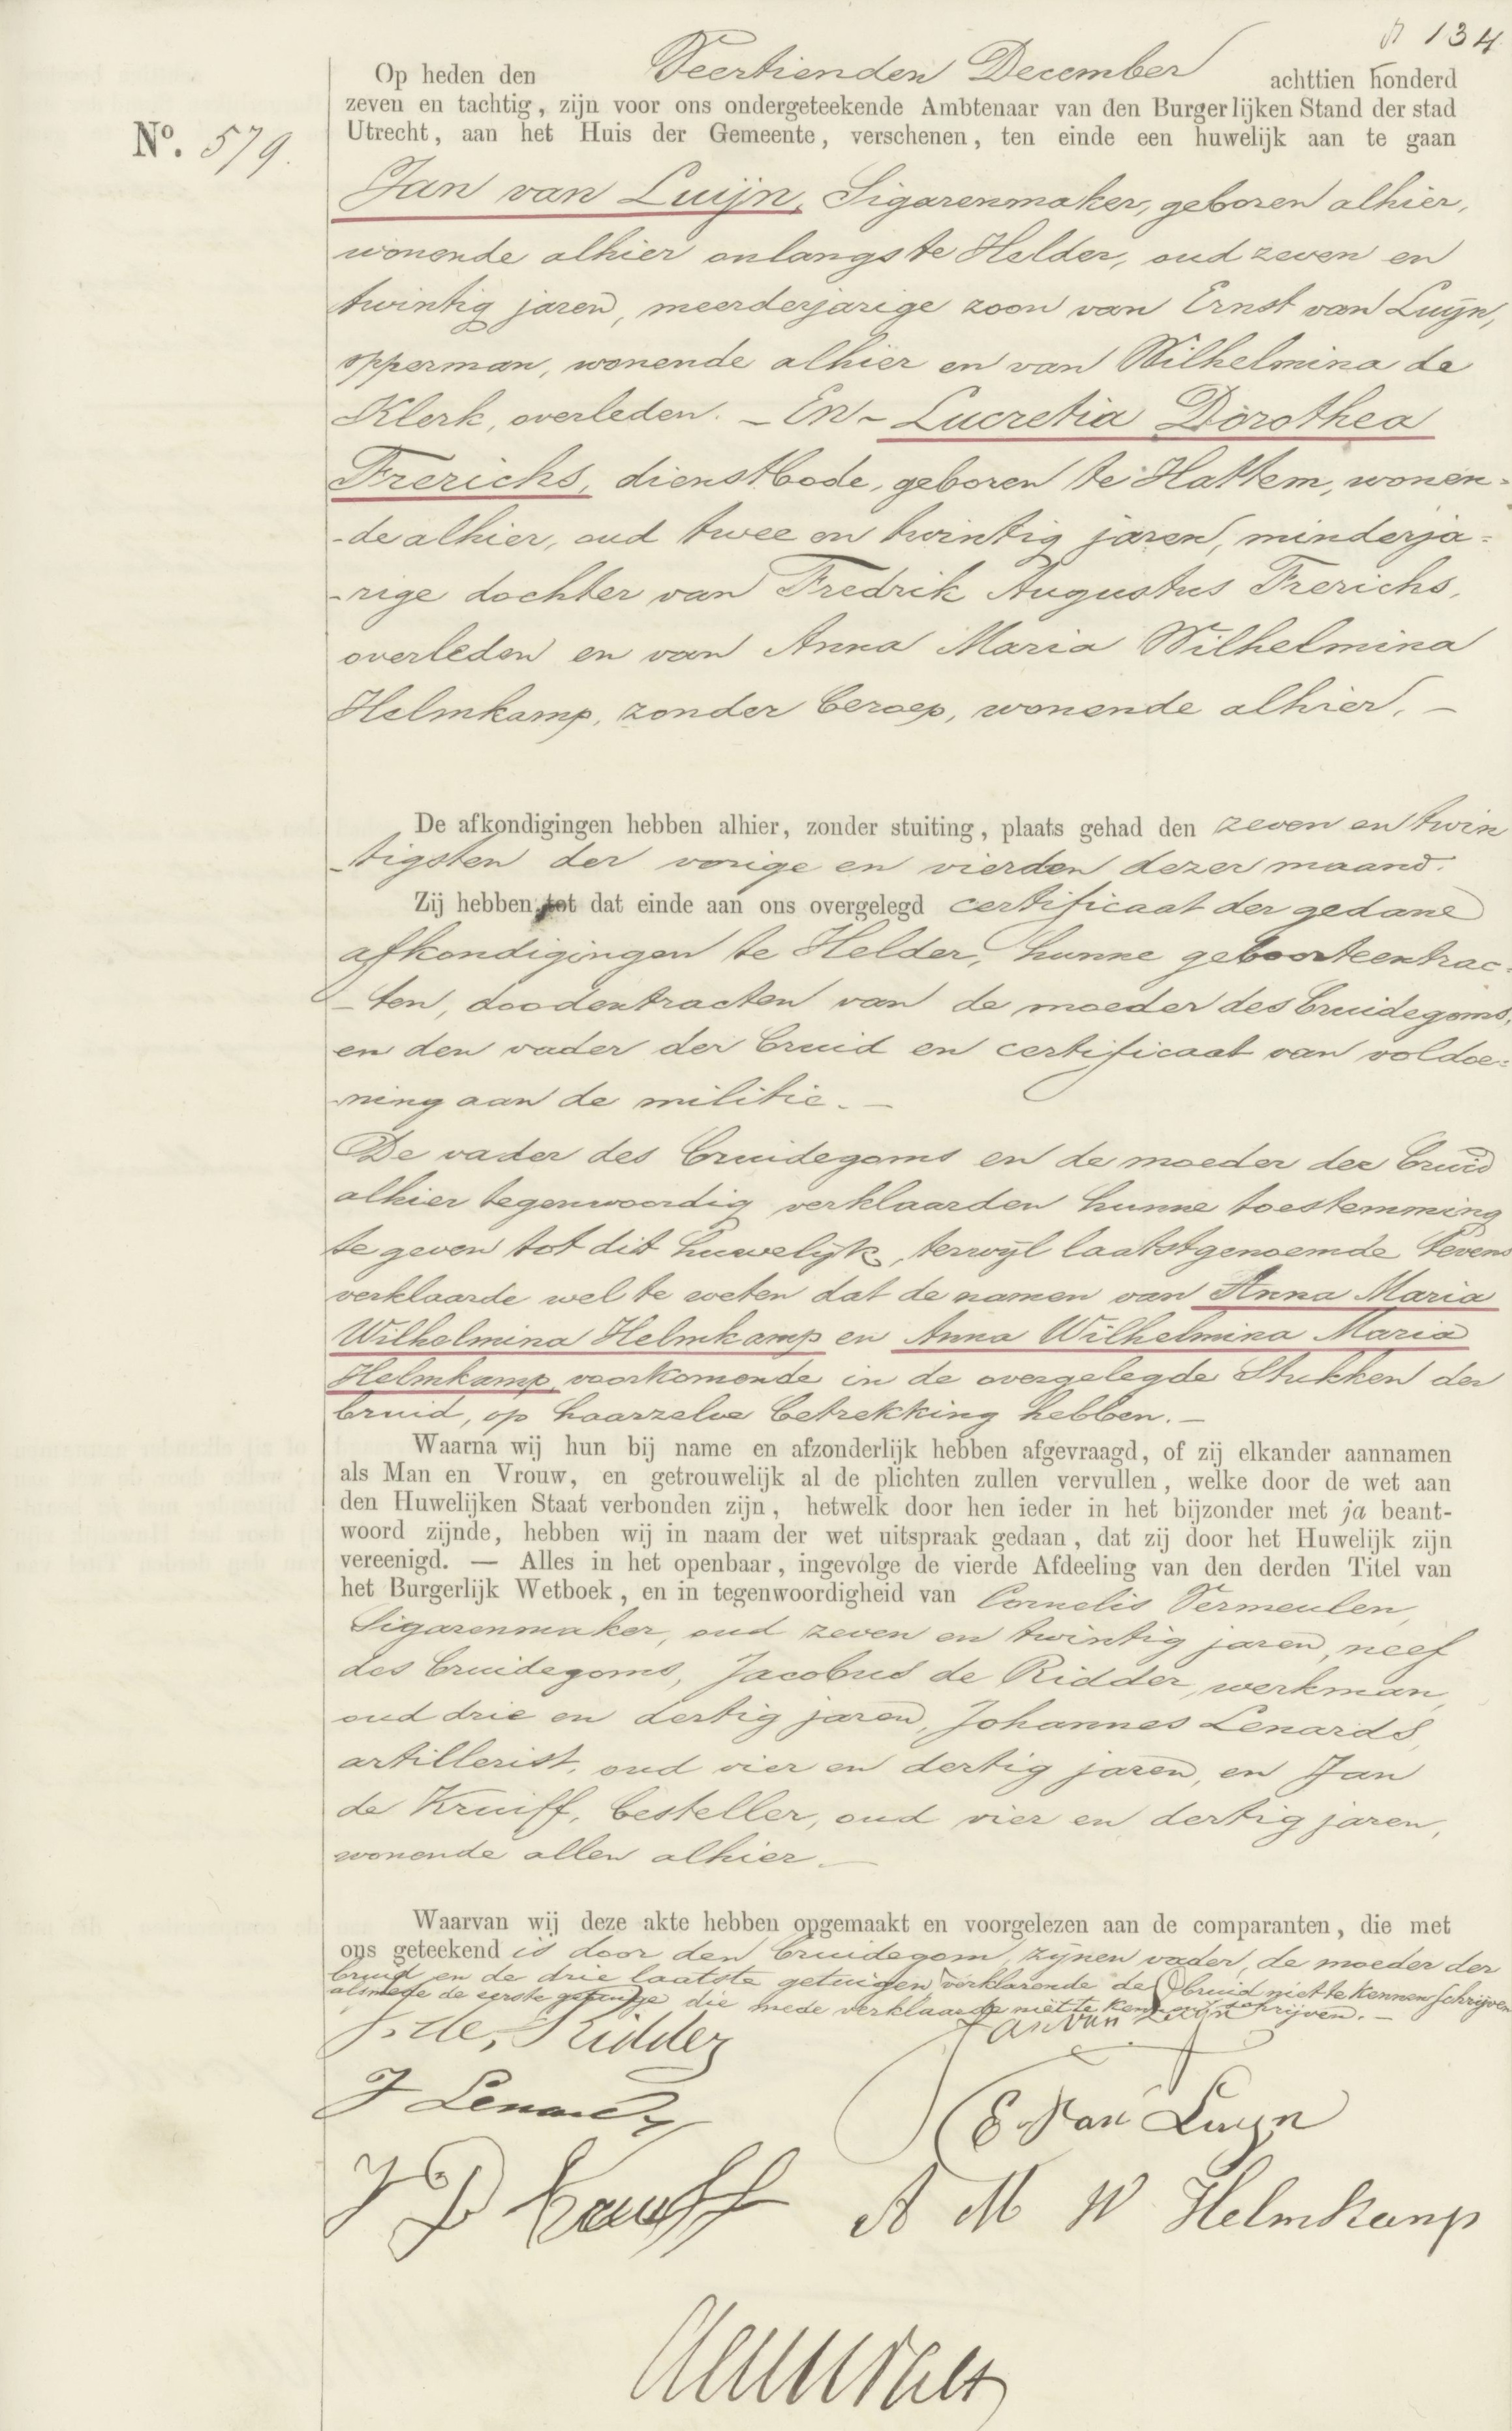 134
Op heden den Veertienden December achttien honderd
zeven en tachtig, zijn voor ons ondergeteekende Ambtenaar van den Burgerlijken Stand der stad
Utrecht, aan het Huis der Gemeente, verschenen, ten einde een huwelijk aan te gaan
No. 579.
Jan van Luijn, Sigarenmaker, geboren alhier,
wonende alhier onlangs te Helder, oud zeven en
twintig jaren, meerderjarige zoon van Ernst van Luijn,
opperman, wonende alhier en van Wilhelmina de
Klerk, overleden. - En - Lucretia Dorothea
Frerichs, dienstbode, geboren te Hattem, wonen=
-de alhier, oud twee en twintig jaren, minderja=
-rige dochter van Fredrik Augustus Frerichs,
overleden en van Anna Maria Wilhelmina
Helmkamp, zonder beroep, wonende alhier. -
De afkondigingen hebben alhier, zonder stuiting, plaats gehad den zeven en twin
-tigsten der vorige en vierden dezer maand.
Zij hebben tot dat einde aan ons overgelegd certificaat der gedane
afkondigingen te Helder, hunne geboorteextrac=
-ten, doodextracten van de moeder des bruidegoms,
en den vader der bruid en certificaat van voldoe=
-ning aan de militie. -
De vader des bruidegoms en de moeder der bruid
alhier tegenwoordig verklaarden hunne toestemming
te geven tot dit huwelijk, terwijl laatstgenoemde tevens
verklaarde wel te weten dat de namen van Anna Maria
Wilhelmina Helmkamp en Anna Wilhelmina Maria
Helmkamp, voorkomende in de overgelegde Stukken der
bruid, op haarzelve betrekking hebben. -
Waarna wij hun bij name en afzonderlijk hebben afgevraagd, of zij elkander aannamen
als Man en Vrouw, en getrouwelijk al de plichten zullen vervullen, welke door de wet aan
den Huwelijken Staat verbonden zijn, hetwelk door hen ieder in het bijzonder met ja beant-
woord zijnde, hebben wij in naam der wet uitspraak gedaan, dat zij door het Huwelijk zijn
vereenigd. — Alles in het openbaar, ingevolge de vierde Afdeeling van den derden Titel van
het Burgerlijk Wetboek, en in tegenwoordigheid van Cornelis Vermeulen,
Sigarenmaker, oud zeven en twintig jaren, neef
des bruidegoms, Jacobus de Ridder, werkman,
oud drie en dertig jaren, Johannes Lenards,
artillerist, oud vier en dertig jaren, en Jan
de Kruiff, besteller, oud vier en dertig jaren,
wonende allen alhier. -
Waarvan wij deze akte hebben opgemaakt en voorgelezen aan de comparanten, die met
ons geteekend is door den bruidegom, zijnen vader, de moeder der
bruid en de drie laatste getuigen, verklarende de bruid niet te kennen schrijven
alsmede de eerste getuige die mede verklaarde niet te kennen schrijven. -
J. de, Ridder
Jan van Luijn
J Lenards
E Van Luyn
J D Kruiff
A M W Helmkamp